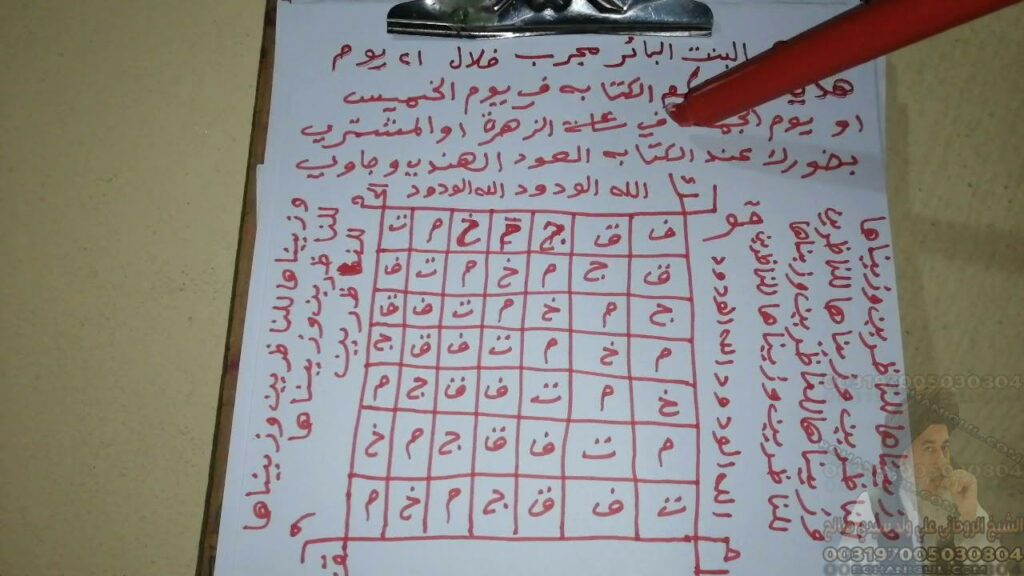 البنت البائر مجرب خلال ٢١ يوم
الكتابه في يوم الخميس
او يوم في ساعة الزهرة او المشتري
بخورك عند الكتابه العود الهندي وجاوي
الله الودود الله الودود
ف ق ج م خ م ت
ق ج م خ م ت ف
خ م خ م ت ف ق
م خ م ت ف ق خ
خ م ت ف ق ج م
م ت ف ق ج م خ
ت ف ق ج م خ م
الله الودود الله الودود
وزيناها للناظرين وزيناها
للناظرين وزيناها للناظرين
وزيناها للناظرين وزيناها
للناظرين وزيناها للناظرين
وزيناها للناظرين وزيناها
للناظرين وزيناها
للناظرين
الشيخ الروحاني علي ولد سيدي صالح
003197005030804